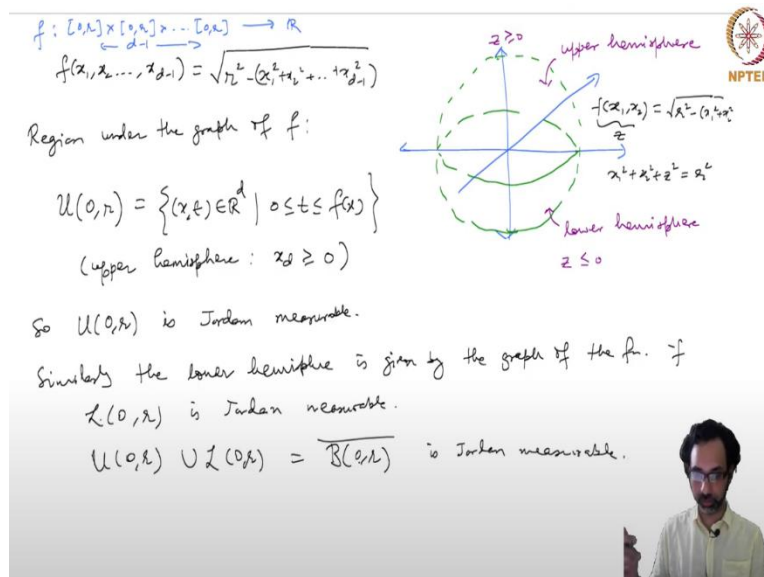 f : [0,r] × [0,r] × ... [0,r] ⟶ ℝ
← d-1 →
f(x₁, x₂ ..., x_{d-1}) = √(r² - (x₁² + x₂² + .. + x²_{d-1}))
Region under the graph of f :
U(0,r) = {(x,t) ∈ ℝ^d | 0 ≤ t ≤ f(x)}
(upper hemisphere : x_d ≥ 0)
So U(0,r) is Jordan measurable.
Similarly the lower hemisphire is given by the graph of the fn. -f
L(0,r) is Jordan measurable.
U(0,r) ∪ L(0,r) = \overline{B(0,r)} is Jordan measurable.
z ≥ 0
upper hemisphere
f(x₁, x₂) = √(r² - (x₁² + x₂²
z
x₁² + x₂² + z² = r²
lower hemisphere
z ≤ 0
NPTEL